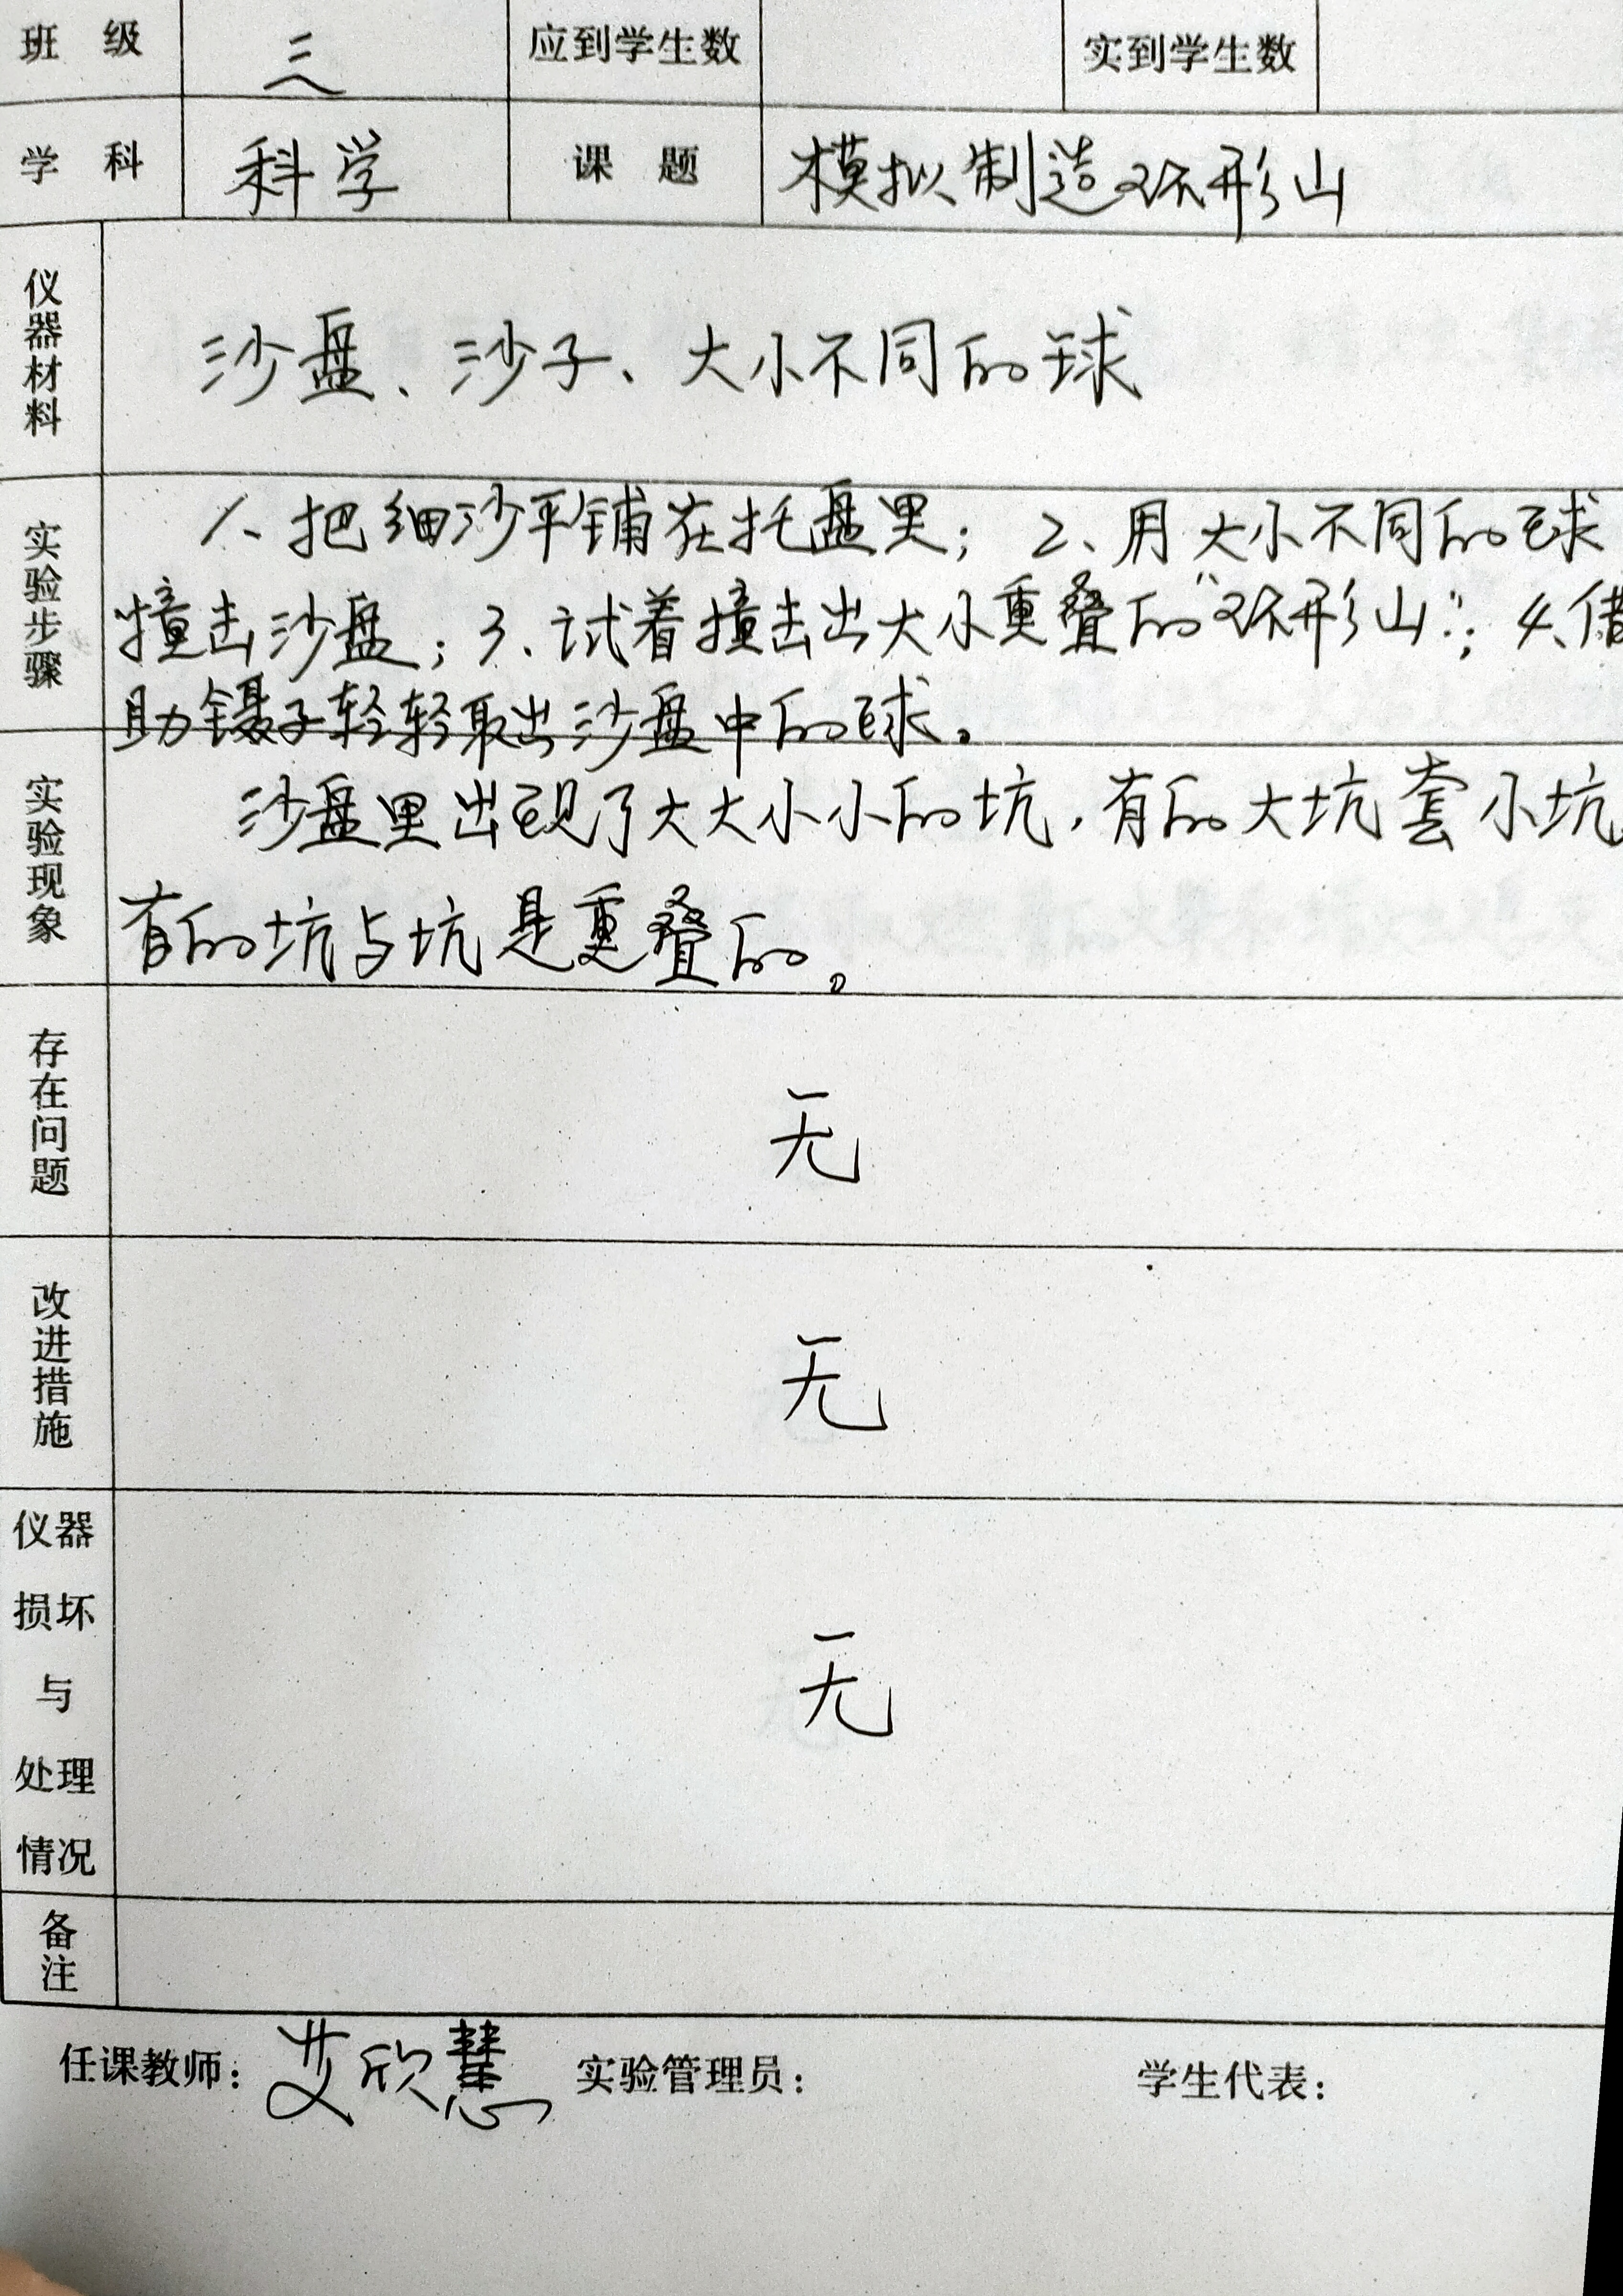 班 级 三 应到学生数 实到学生数
学 科 科学 课 题 模拟制造环形山
仪器材料 沙盘、沙子、大小不同的球
实验步骤 1、把细沙平铺在托盘里；2、用大小不同的球
撞击沙盘；3、试着撞击出大小重叠的“环形山”；4、借
助镊子轻轻取出沙盘中的球。
实验现象 沙盘里出现了大大小小的坑，有的大坑套小坑，
有的坑与坑是重叠的。
存在问题 无
改进措施 无
仪器
损坏
与
处理
情况 无
备注
任课教师：艾欣慧 实验管理员： 学生代表：